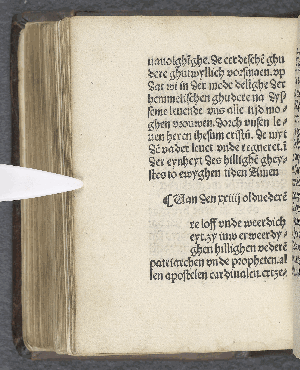 nauolghīghe. de eerdeschē ghu
dere ghutwyllich vorsmaen. vp
dat wi in der mede delighe der
hemmelischen ghudere na dyss
seme leuende vns alle tijd mo-
ghen vrouwen. dorch vnsen le-
uen heren ihesum cristū. de myt
dē vader leuet vnde regneret. ī
der eynheyt des hillighē ghey-
stes to ewyghen tiden Amen
¶ Uan den xxiiij oldueders̄
re loff vnde weerdich
eyt. zy iuw erweerdy-
ghen hillighen vederē
patriarchen vnde propheten. al
len apostelen cardinalen. ertze-